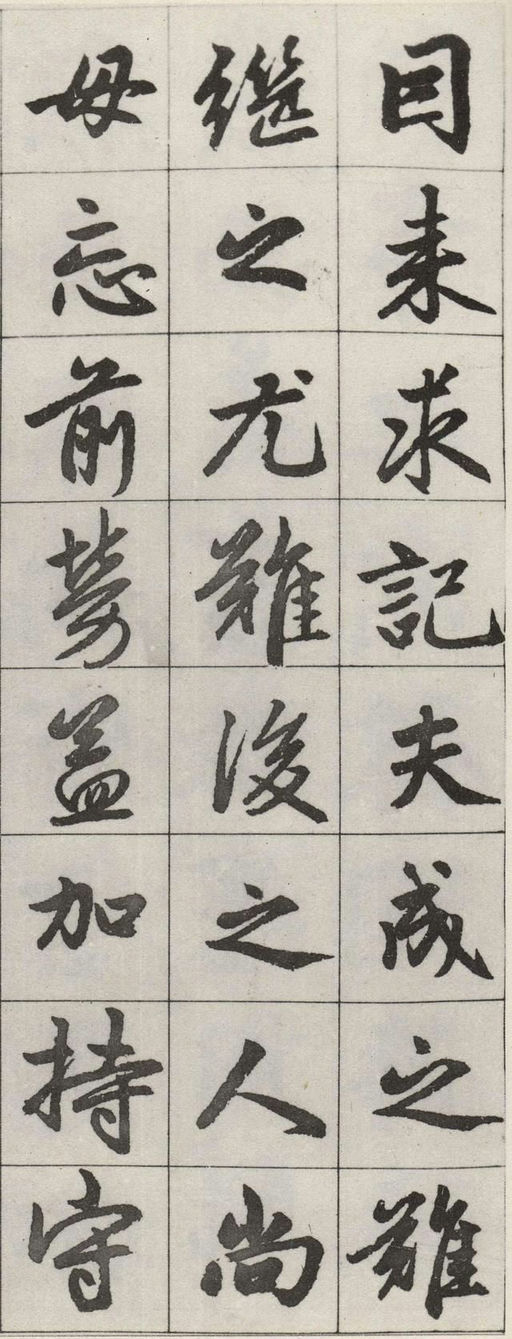 因来求記夫成之難
継之尤難後之人尚
毋忘前勞盖加持守